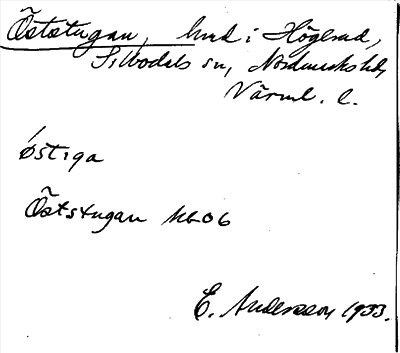 Öststugan, hmd i Högerud,
Sillbodals sn, Nordmarks hd,
Värml. l.
östiga
Öststugan MB06
E. Andersson 1933.